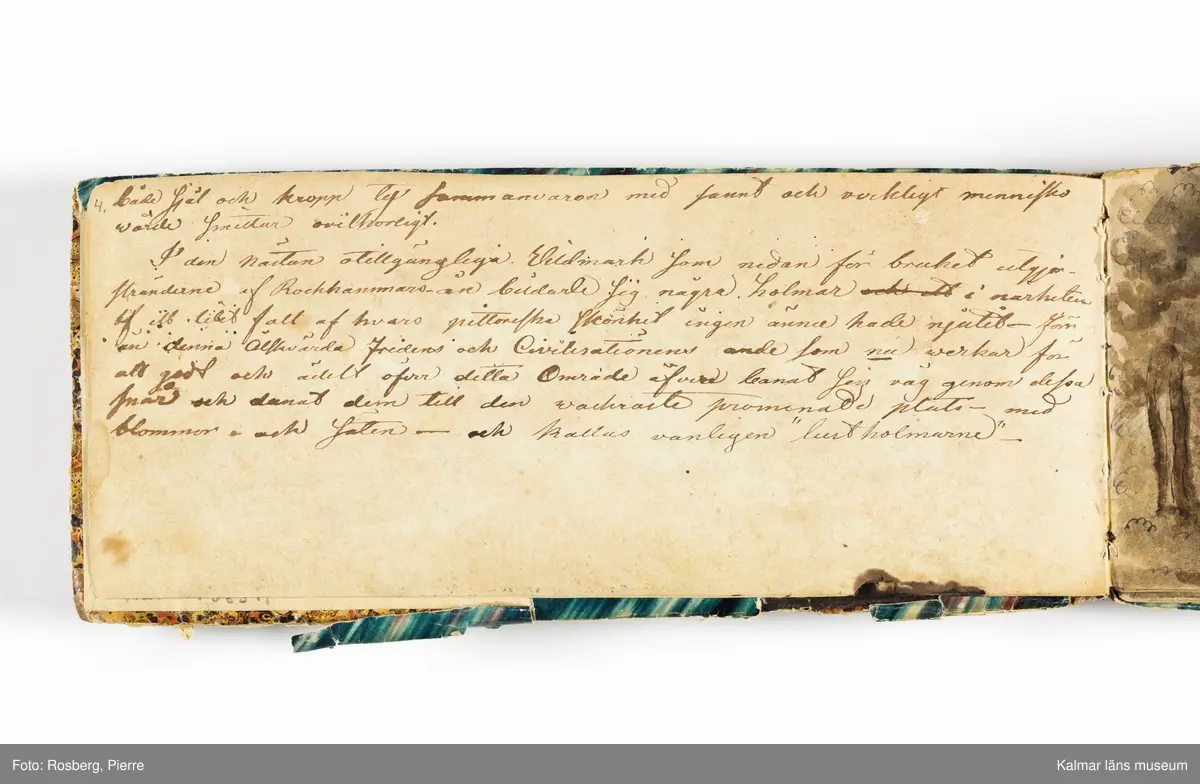 4.
både själ och kropp ty sammanvaron med sannt och verkligt mennisko
wärde smittar ovilkorligt.
I den nästan otillgängliga Vildmark som nedan för bruket utgjor-
stränderne af Rockhammars-ån bildade sig några holmar och ett i narheten
af ett litet fall af hvars pittoreska skönhet ingen ännu hade njutit – förr
än denna älskvärda Fridens och Civilisationens ande som nu werkar för
allt godt och ädelt ofver detta Område äfven banat sig väg genom dessa
snår och danat dem till den wackraste promenade plats – med
blommor och säten – och kallas vanligen "lustholmarne" –
Foto: Rosberg, Pierre
Kalmar läns museum